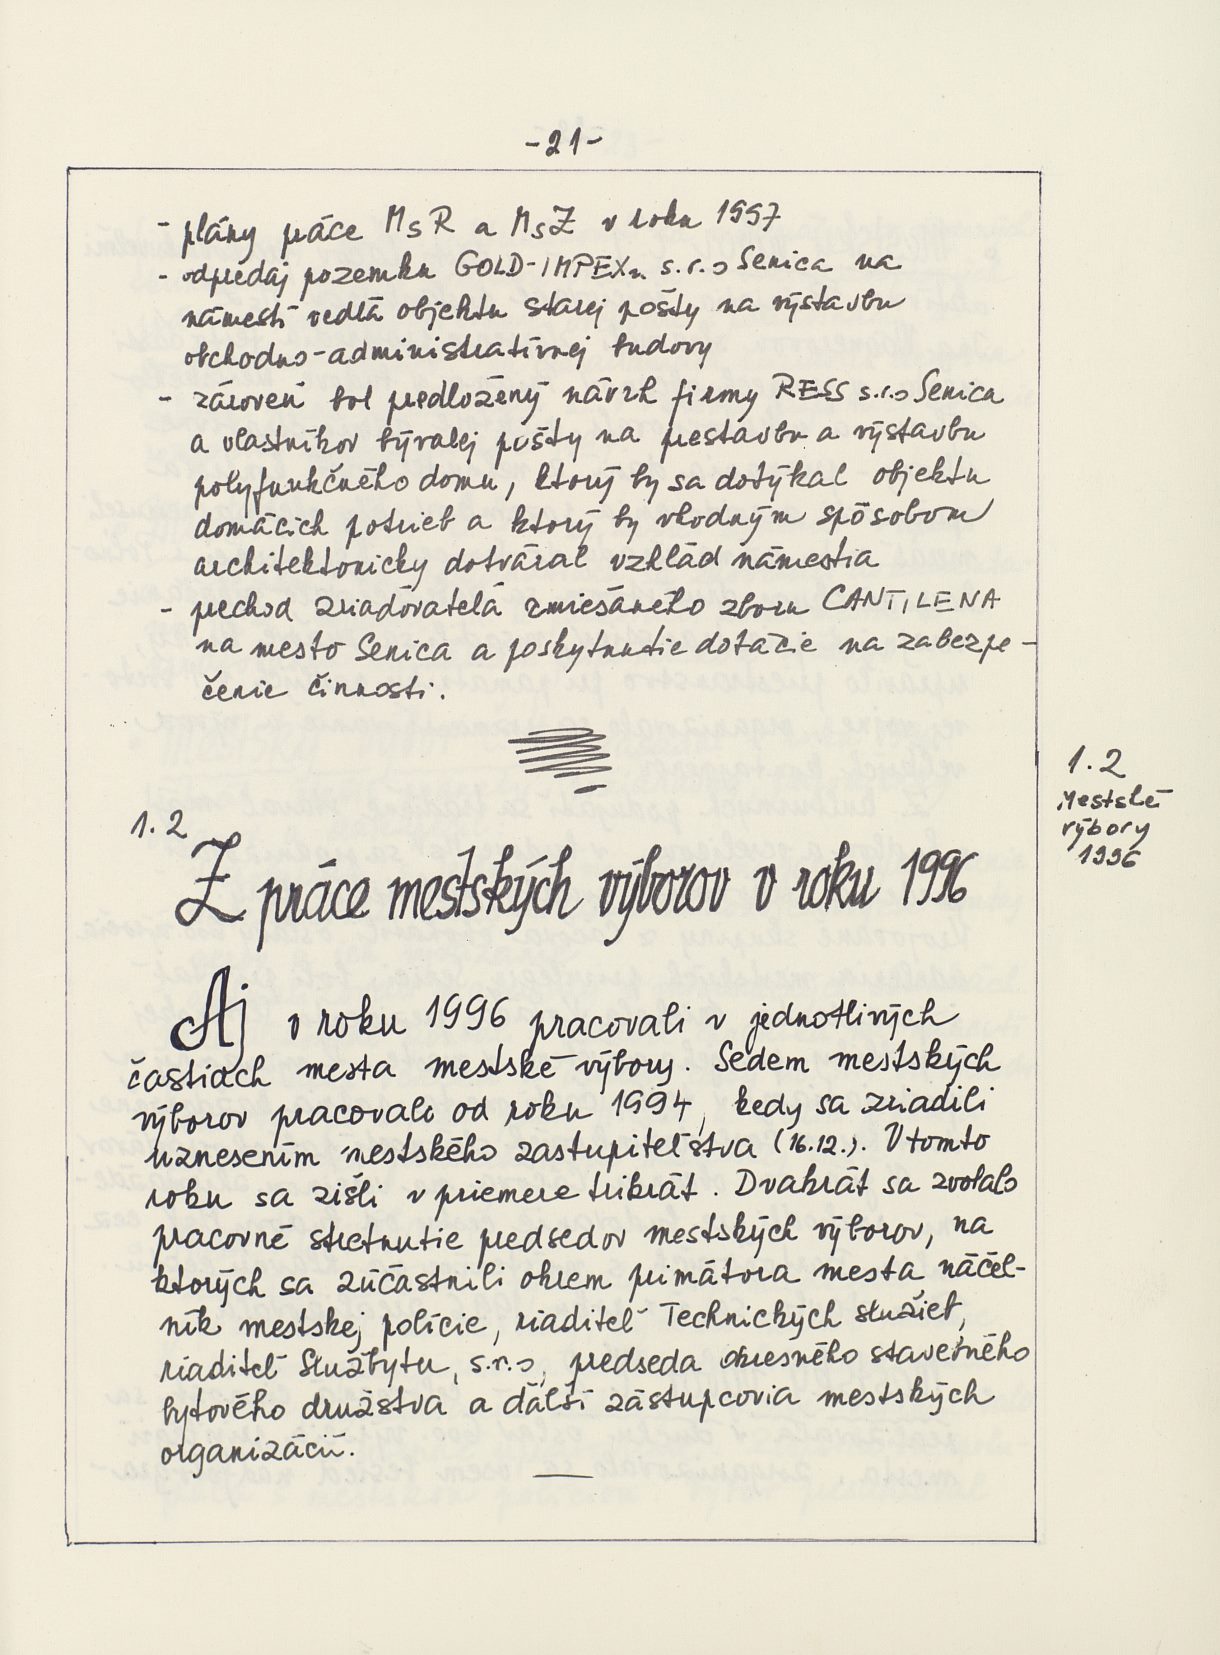 -21-
- plány práce MsR a MsZ v roku 1997
- odpredaj pozemku GOLD-IMPEXu s.r.o Senica na
námestí vedľa objektu starej pošty na výstavbu
obchodno-administratívnej budovy
- zároveň bol predložený návrh firmy RESS s.r.o Senica
a vlastníkov bývalej pošty na prestavbu a výstavbu
polyfunkčného domu, ktorý by sa dotýkal objektu
domácich potrieb a ktorý by vhodným spôsobom
architektonicky dotváral vzhľad námestia
- prechod zriaďovateľa zmiešaného zboru CANTILENA
na mesto Senica a poskytnutie dotácie na zabezpe-
čenie činnosti.
1.2
Mestské
výbory
1996
1.2
Z práce mestských výborov v roku 1996
Aj v roku 1996 pracovali v jednotlivých
častiach mesta mestské výbory. Sedem mestských
výborov pracovalo od roku 1994, kedy sa zriadili
uznesením mestského zastupiteľstva (16.12.). V tomto
roku sa zišli v priemere trikrát. Dvakrát sa zvolalo
pracovné stretnutie predsedov mestských výborov, na
ktorých sa zúčastnili okrem primátora mesta náčel-
ník mestskej polície, riaditeľ Technických služieb,
riaditeľ Službytu, s.r.o, predseda okresného stavebného
bytového družstva a ďalší zástupcovia mestských
organizácií.